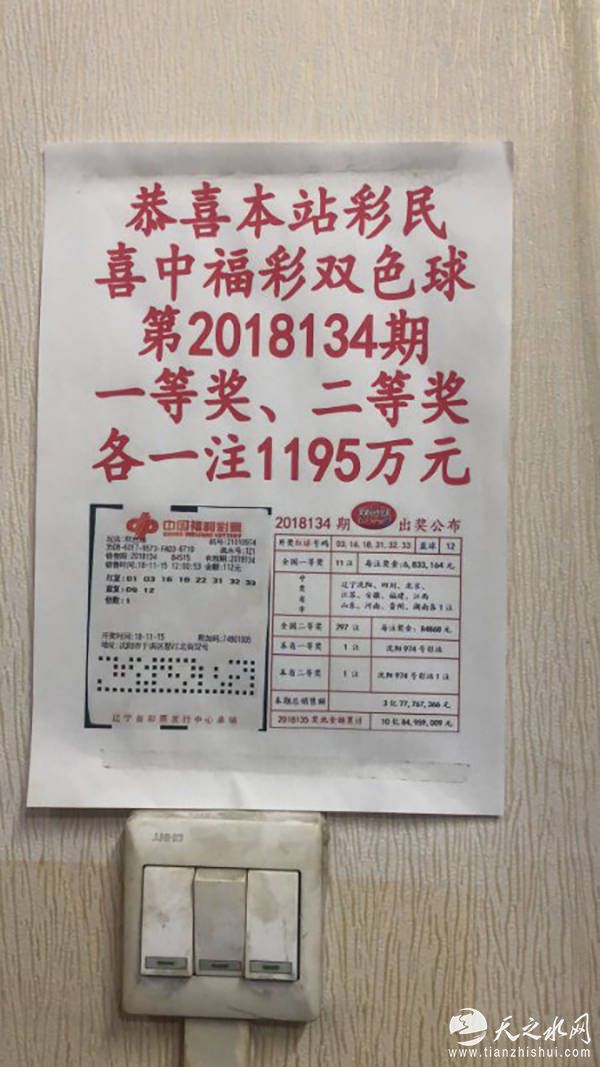 恭喜本站彩民
喜中福彩双色球
第2018134期
一等奖、二等奖
各一注1195万元
中国福利彩票
销售期:2018134 84515
销售时间:18-11-15 12:00:53 金额:112元
红复:01 03 16 18 22 31 32 33
蓝复:09 12
倍数:1
开奖时间:18-11-15 附加码:74801005
辽宁省彩票发行中心承销
2018134 期 出奖公布
开奖红球号码 03, 16, 18, 31, 32, 33 蓝球 12
全国一等奖 11注 每注奖金:6,833,164元
中奖省市
辽宁沈阳、四川、北京、
江苏、安徽、福建、江西
山东、河南、贵州、湖南各1注
全国二等奖 297注 每注奖金:84668元
本省一等奖 1注 沈阳974号彩站
本省二等奖 1注 沈阳974号彩站1注
本期总销售额 3亿77,767,366元
2018135奖池金额累计 10亿84,959,009元
天之水网
www.tianzhishui.com